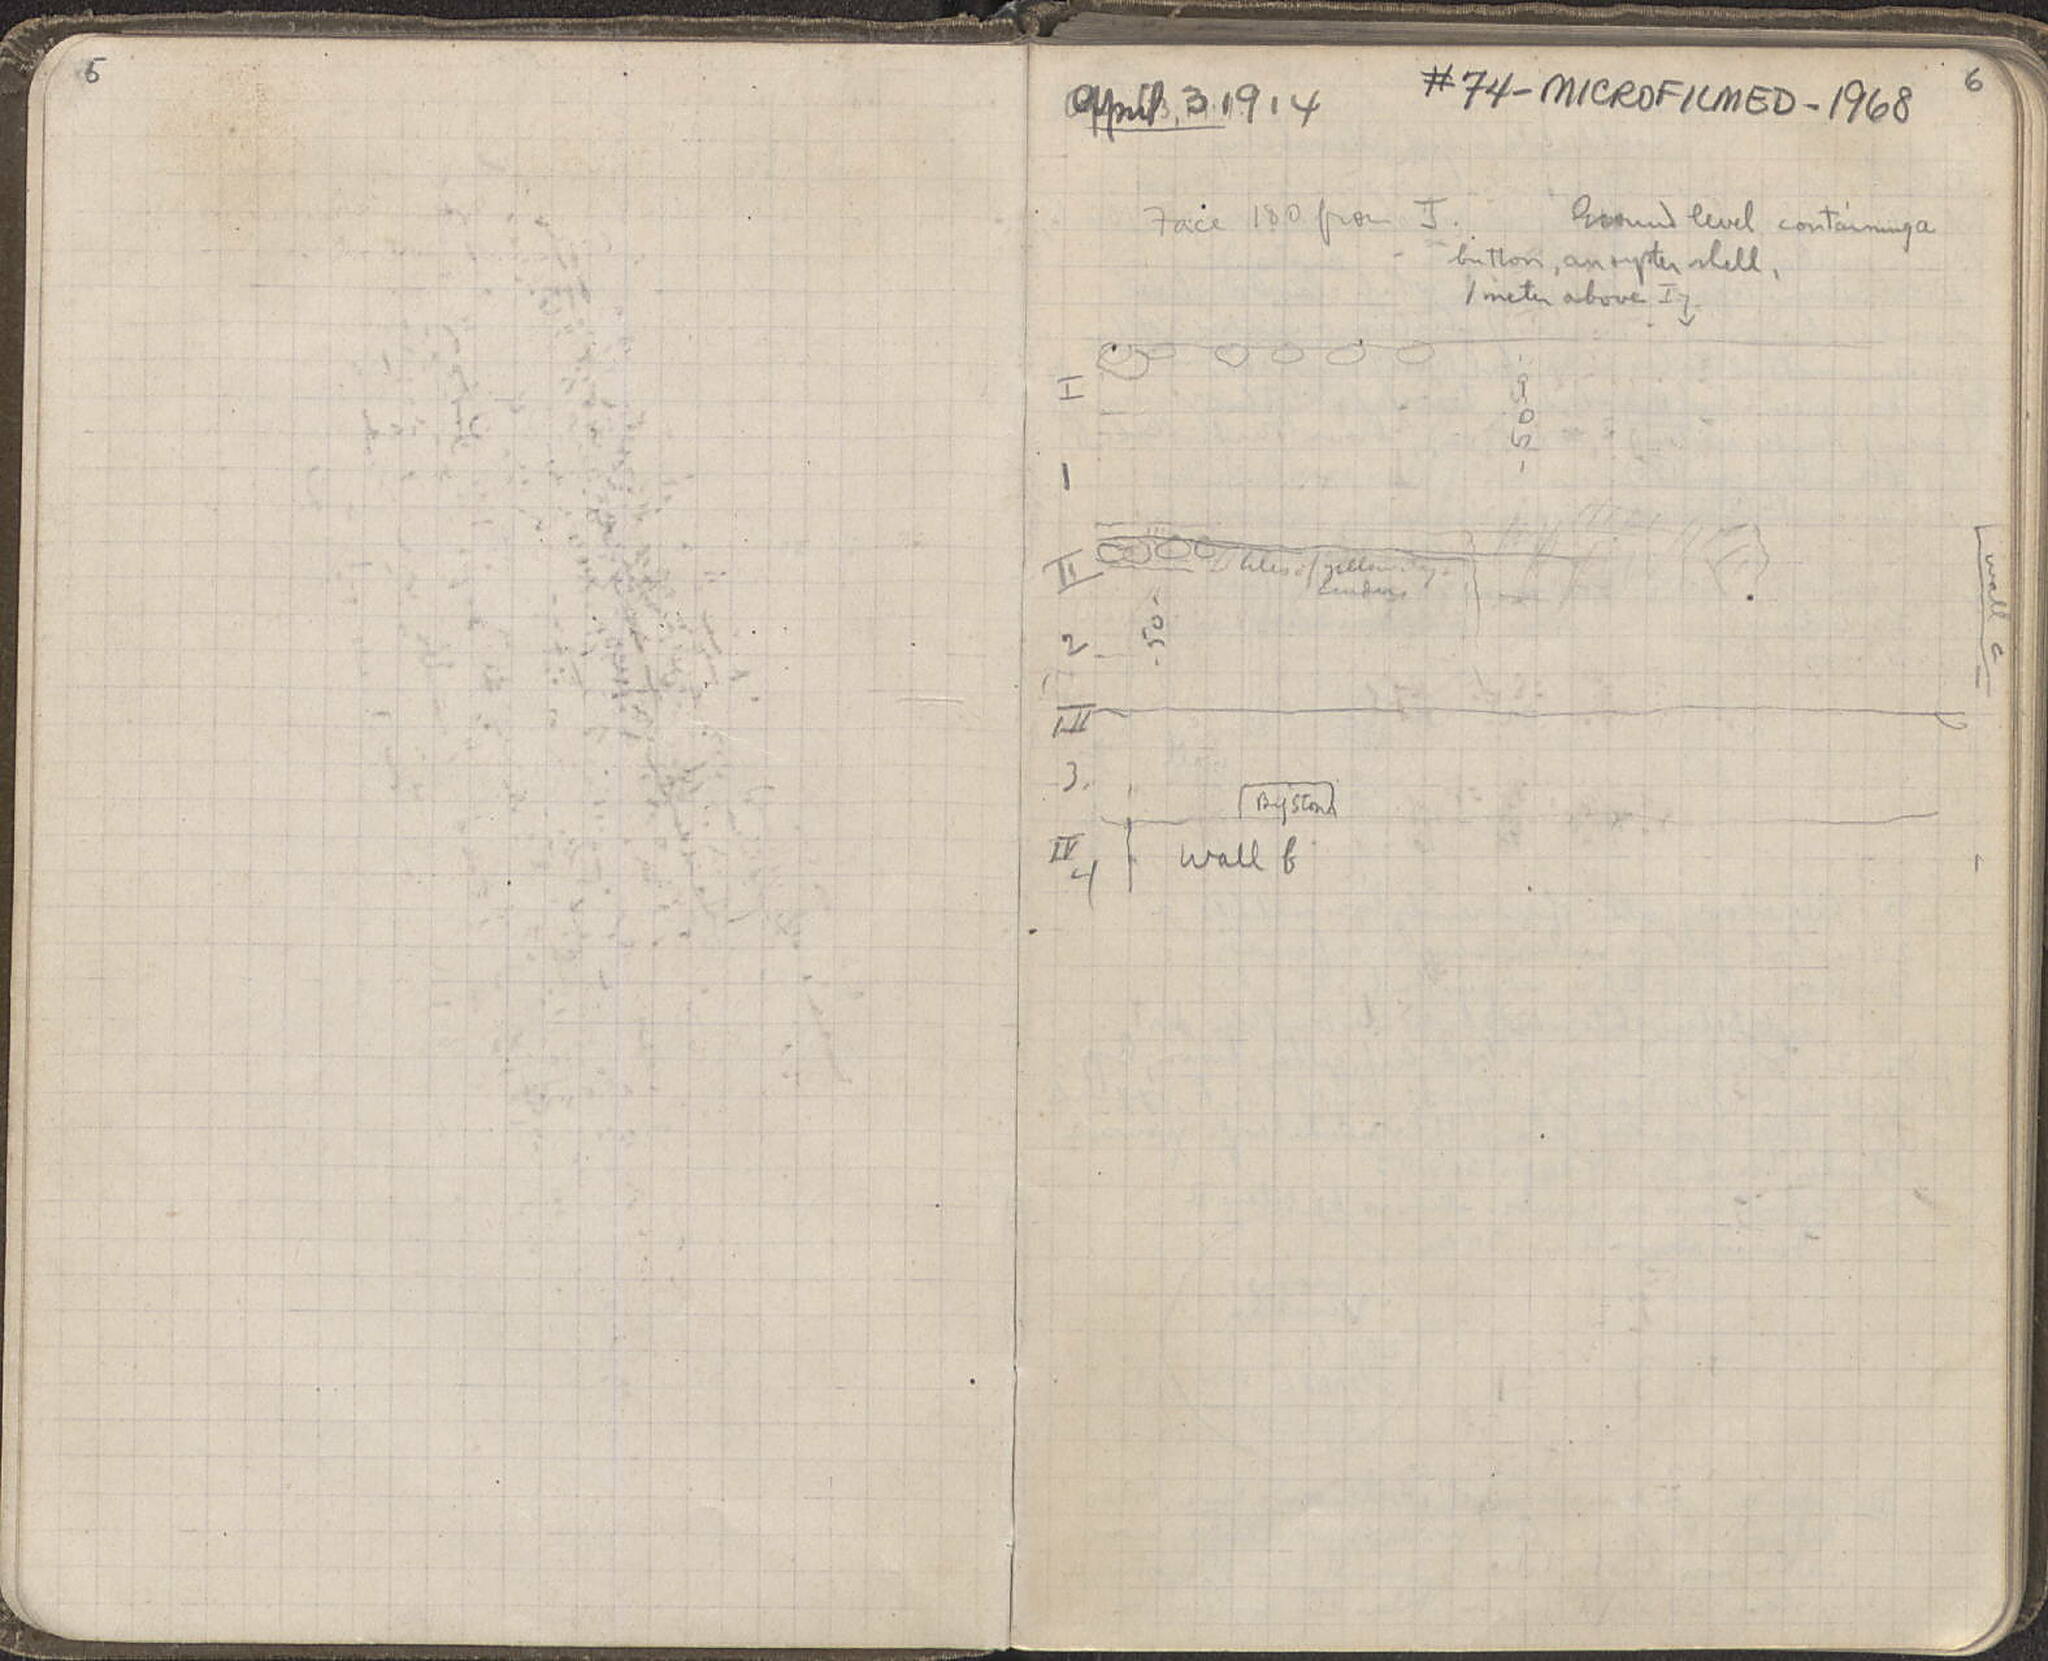 5
6
#74-MICROFILMED-1968
April 3 1914
Face 180 from I.
Ground level containing a
button, an oyster shell,
1 meter above I
I
1
II
yellow
2
50
III
3.
Big Stone
IV
4
Wall b
Wall c